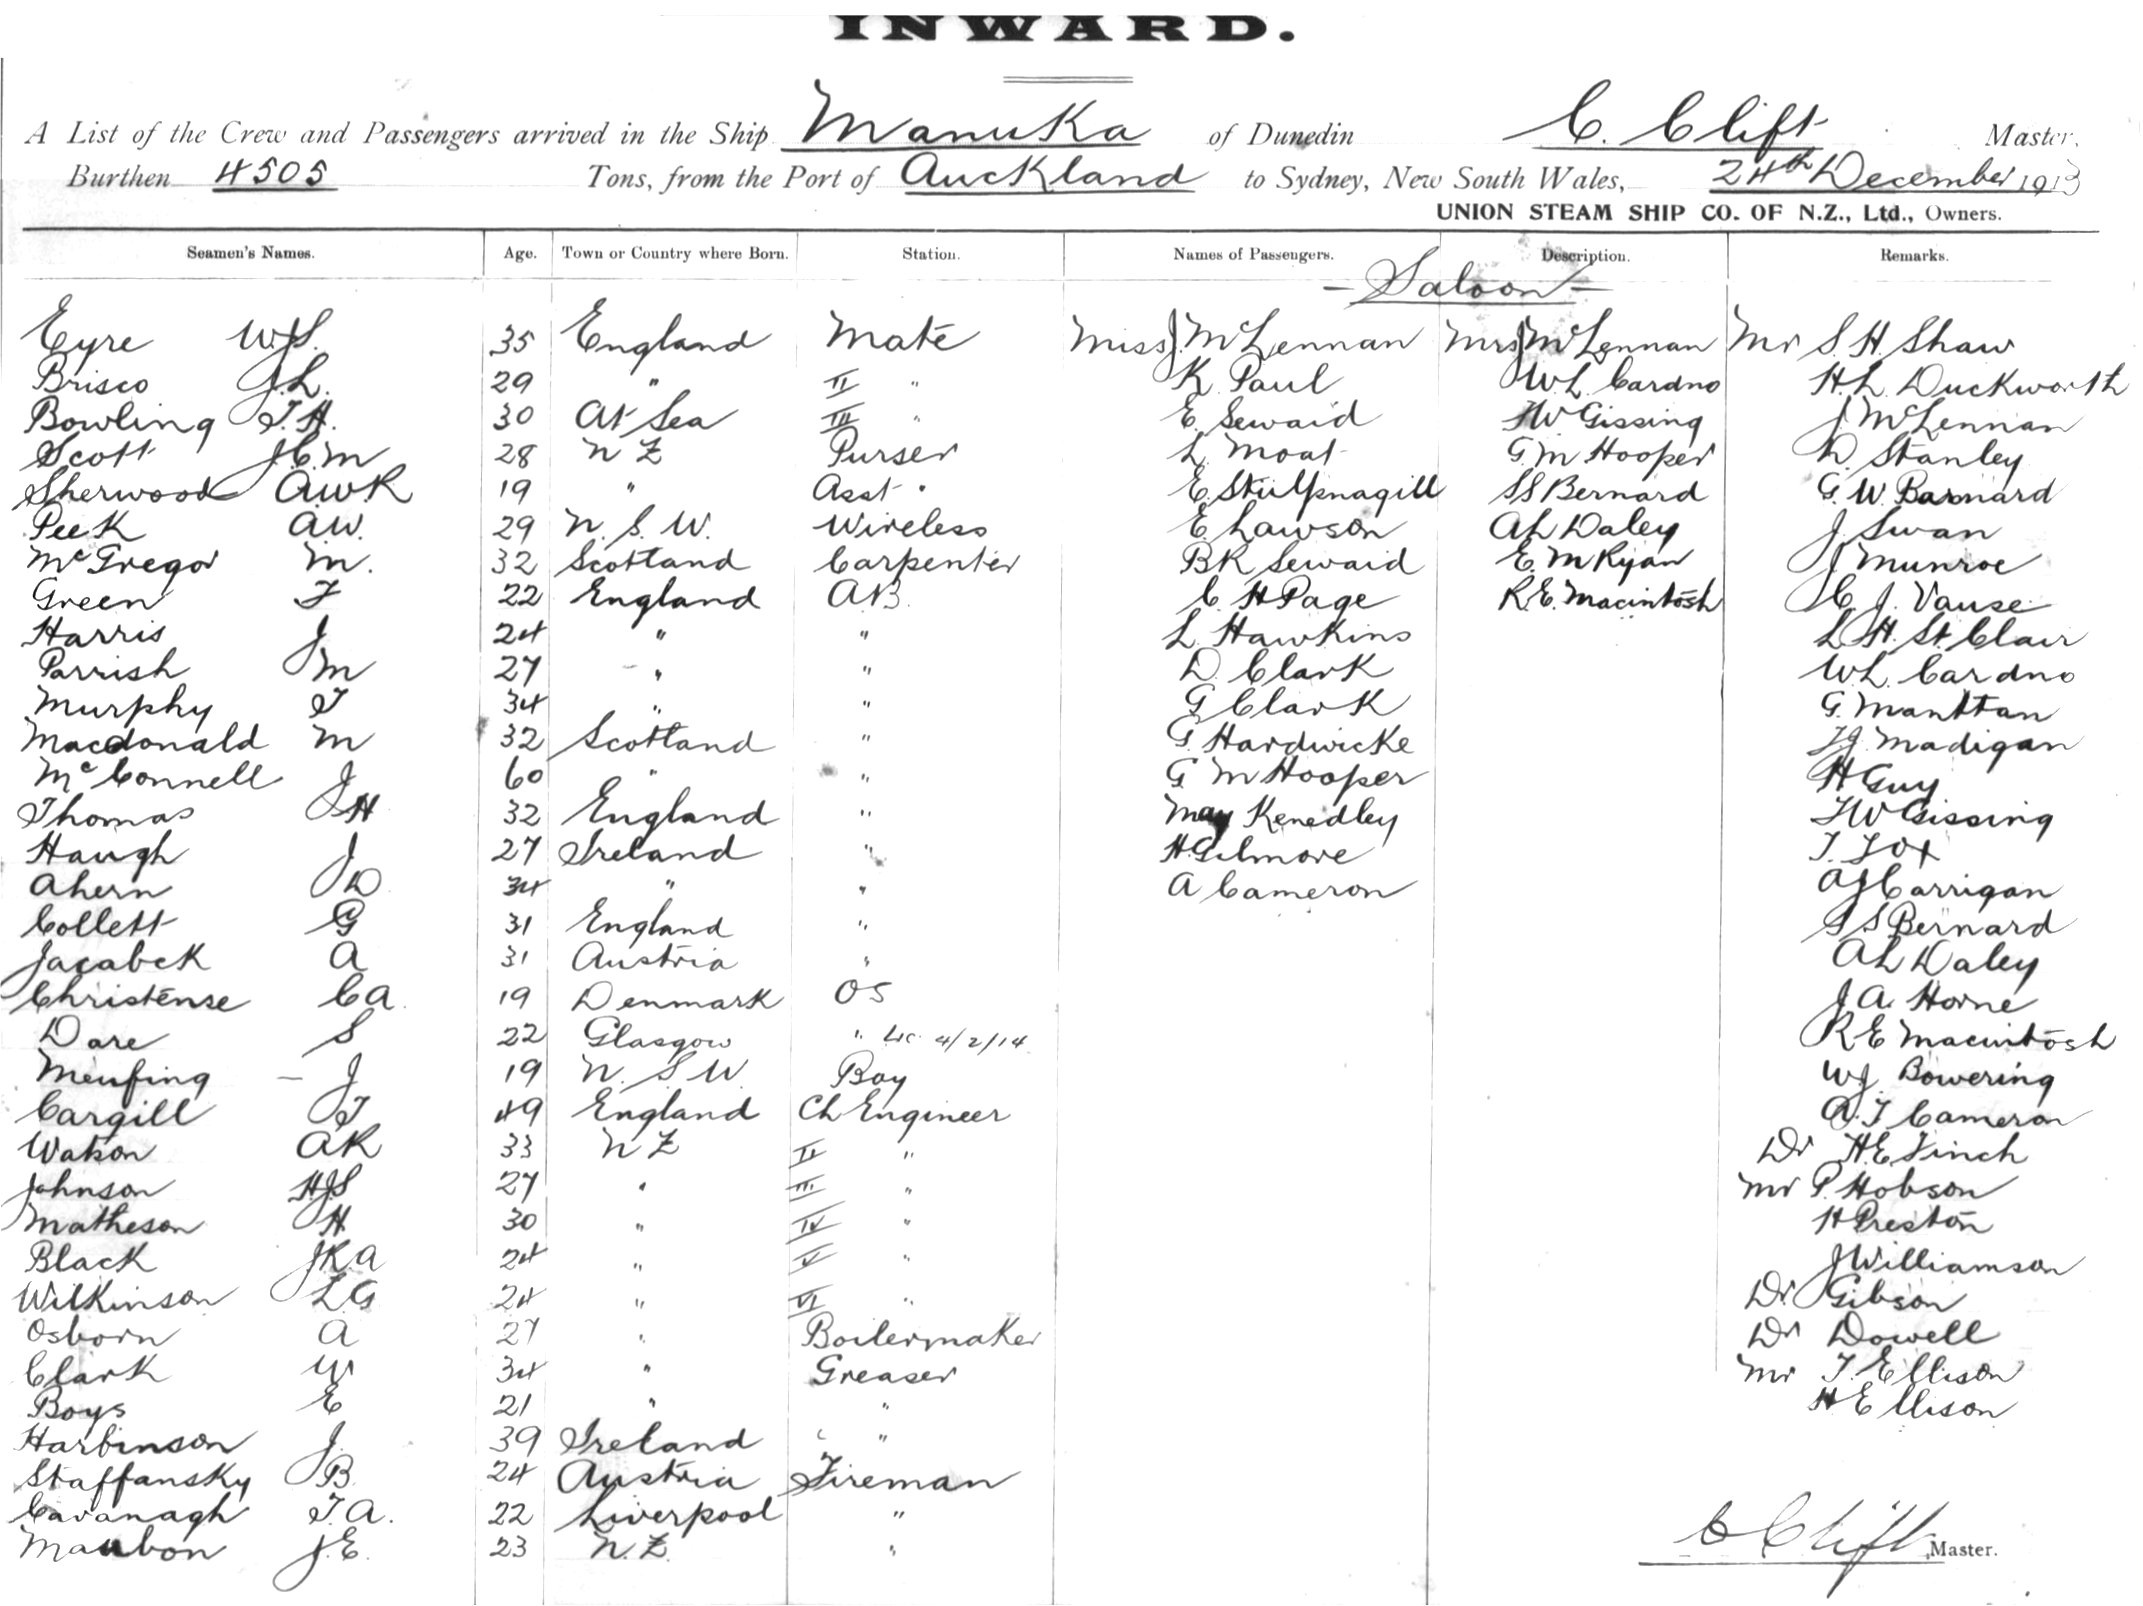 INWARD.
A List of the Crew and Passengers arrived in the Ship Manuka of Dunedin C. Clift Master,
Burthen 4505 Tons, from the Port of Auckland to Sydney, New South Wales, 24th December 1913
UNION STEAM SHIP CO. OF N.Z., Ltd., Owners.
Seamen's Names. Age. Town or Country where Born. Station. Names of Passengers. Description. Remarks.
- Saloon -
Eyre W.J.S. 35 England Mate Miss J. McLennan Mrs J McLennan Mr S. H Shaw
Brisco J.L. 29 " II " K Paul WL Cardno H.L Duckworth
Bowling T.H. 30 At Sea III " E. Sewaid FW Gissing J McLennan
Scott J.C.M 28 N Z Purser L Moat G M Hooper D Stanley
Sherwood AWR 19 " Asst " E. Stulpnagill SS Bernard G. W. Barnard
Peek AW. 29 N. S. W. Wireless E Lawson AL Daley J Swan
McGregor M. 32 Scotland Carpenter BR Sewaid E. M Ryan J Munroe
Green F 22 England AB. C H Page R.E. Macintosh C J. Vause
Harris J 24 " " L Hawkins L H. St Clair
Parrish JM 27 " " D. Clark W.L. Cardno
Murphy T 34 " " G Clark G. Manttan
Macdonald M 32 Scotland " G. Hardwicke Madigan
McConnell J 60 " " G M Hooper H Guy
Thomas JH 32 England " May Kenedley FW Gissing
Haugh J 27 Ireland " H Gilmore T. Fox
Ahern JD 34 " " A Cameron AJ Carrigan
Collett G 31 England " S S Bernard
Jacabek A 31 Austria " AL Daley
Christense CA. 19 Denmark OS J A. Horne
Dare S 22 Glasgow " Lic. 4/2/14 R E Macintosh
Meufing - J 19 N. S W. Boy WJ Bowering
Cargill T 49 England Ch Engineer A. T Cameron
Watson AR 33 N Z II " Dr H.E Finch
Johnson HJS 27 " III " Mr P. Hobson
Matheson H 30 " IV " H Preston
Black JRA 24 " V " J Williamson
Wilkinson LG 24 " VI " Dr Gibson
Osborn A 27 " Boilermaker Dr Dowell
Clark W 34 " Greaser Mr T. Ellison
Boys E 21 " " H Ellison
Harbinson J. 39 Ireland "
Staffansky B. 24 Austria Fireman
Cavanagh T.A. 22 Liverpool "
Maubon J.E. 23 N.Z. "
C Clift Master.